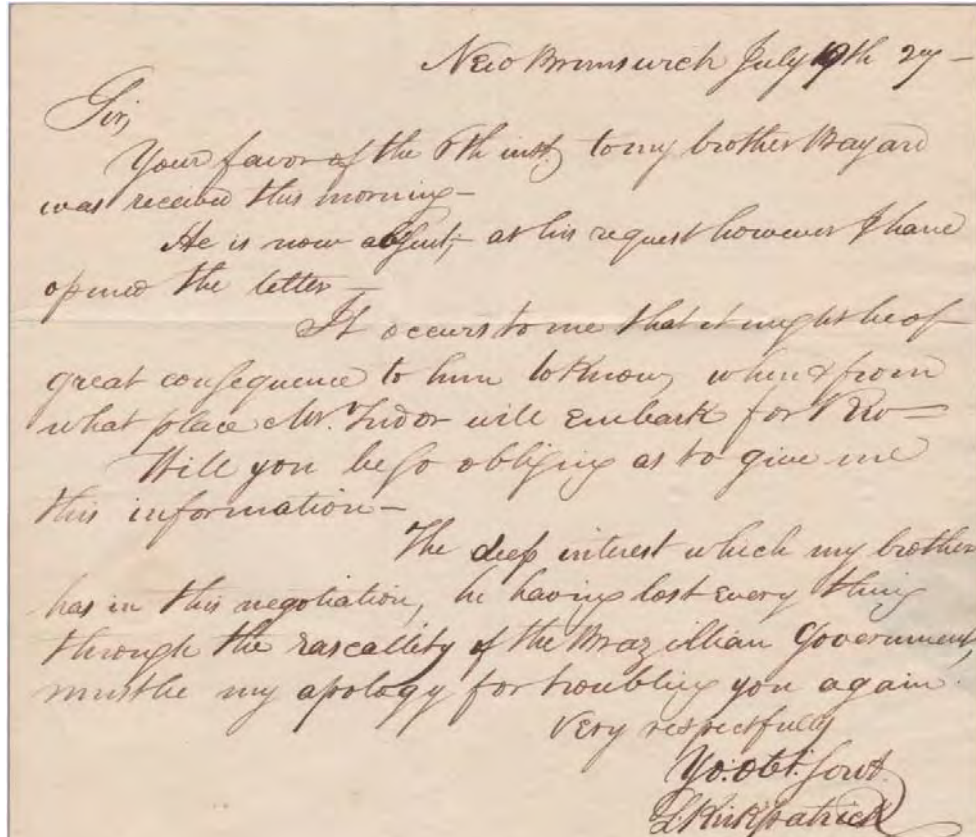 New Brunswick July 19th 27 -
Sir,
Your favor of the 6th inst, to my brother Bayard
was received this morning -
He is now absent, - at his request however I have
opened the letter -
It occurs to me that it might be of
great consequence to him to know, when & from
what place Mr. Tudor will Embark for Rio -
Will you be so obliging as to give me
this information -
The deep interest which my brother
has in this negotiation, he having lost Every thing
through the rascallity of the Brazillian Government,
must be my apology for troubling you again.
Very respectfully
Yo: obt: Servt.
Kirkpatrick